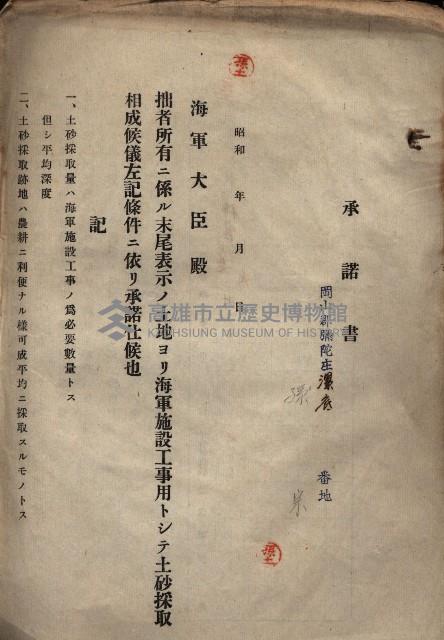 承諾書
岡山郡彌陀庄
番地
昭和 年 月 日
海軍大臣殿
拙者所有ニ係ル末尾表示ノ土地ヨリ海軍施設工事用トシテ土砂採取
相成候儀左記條件ニ依リ承諾仕候也
記
一、土砂採取量ハ海軍施設工事ノ爲必要數量トス
但シ平均深度
二、土砂採取跡地ハ農耕ニ利便ナル樣可成平均ニ採取スルモノトス
高雄市立歷史博物館
KAOHSIUNG MUSEUM OF HISTORY